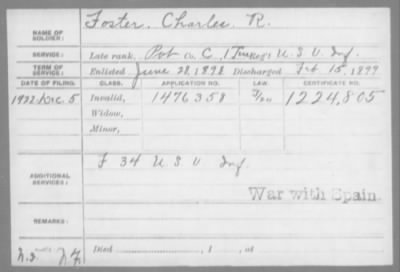 NAME OF SOLDIER: Foster, Charles R.
SERVICE: Late rank, Pvt Co. C, 1 Reg't U.S.V. Inf.
TERM OF SERVICE: Enlisted June 28, 1898 Discharged Feb 15, 1899
DATE OF FILING. CLASS. APPLICATION NO. LAW. CERTIFICATE NO.
1922 Dec. 5 Invalid, 1476358 1224,805
Widow,
Minor,
ADDITIONAL SERVICES: F 34 U S V Inf.
War with Spain.
REMARKS:
Died , 1 , at